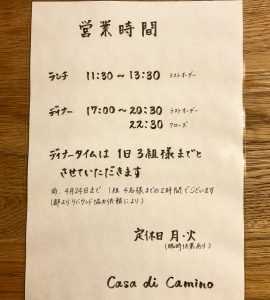 営業時間
ランチ 11:30～13:30 ラストオーダー
ディナー 17:00～20:30 ラストオーダー
22:30 クローズ
ディナータイムは 1日 3組様までと
させていただきます
尚、4月24日まで 1組 4名様までの2時間でございます
(都よりリバウンド協力依頼により)
定休日 月・火
(臨時休業あり)
Casa di Camino